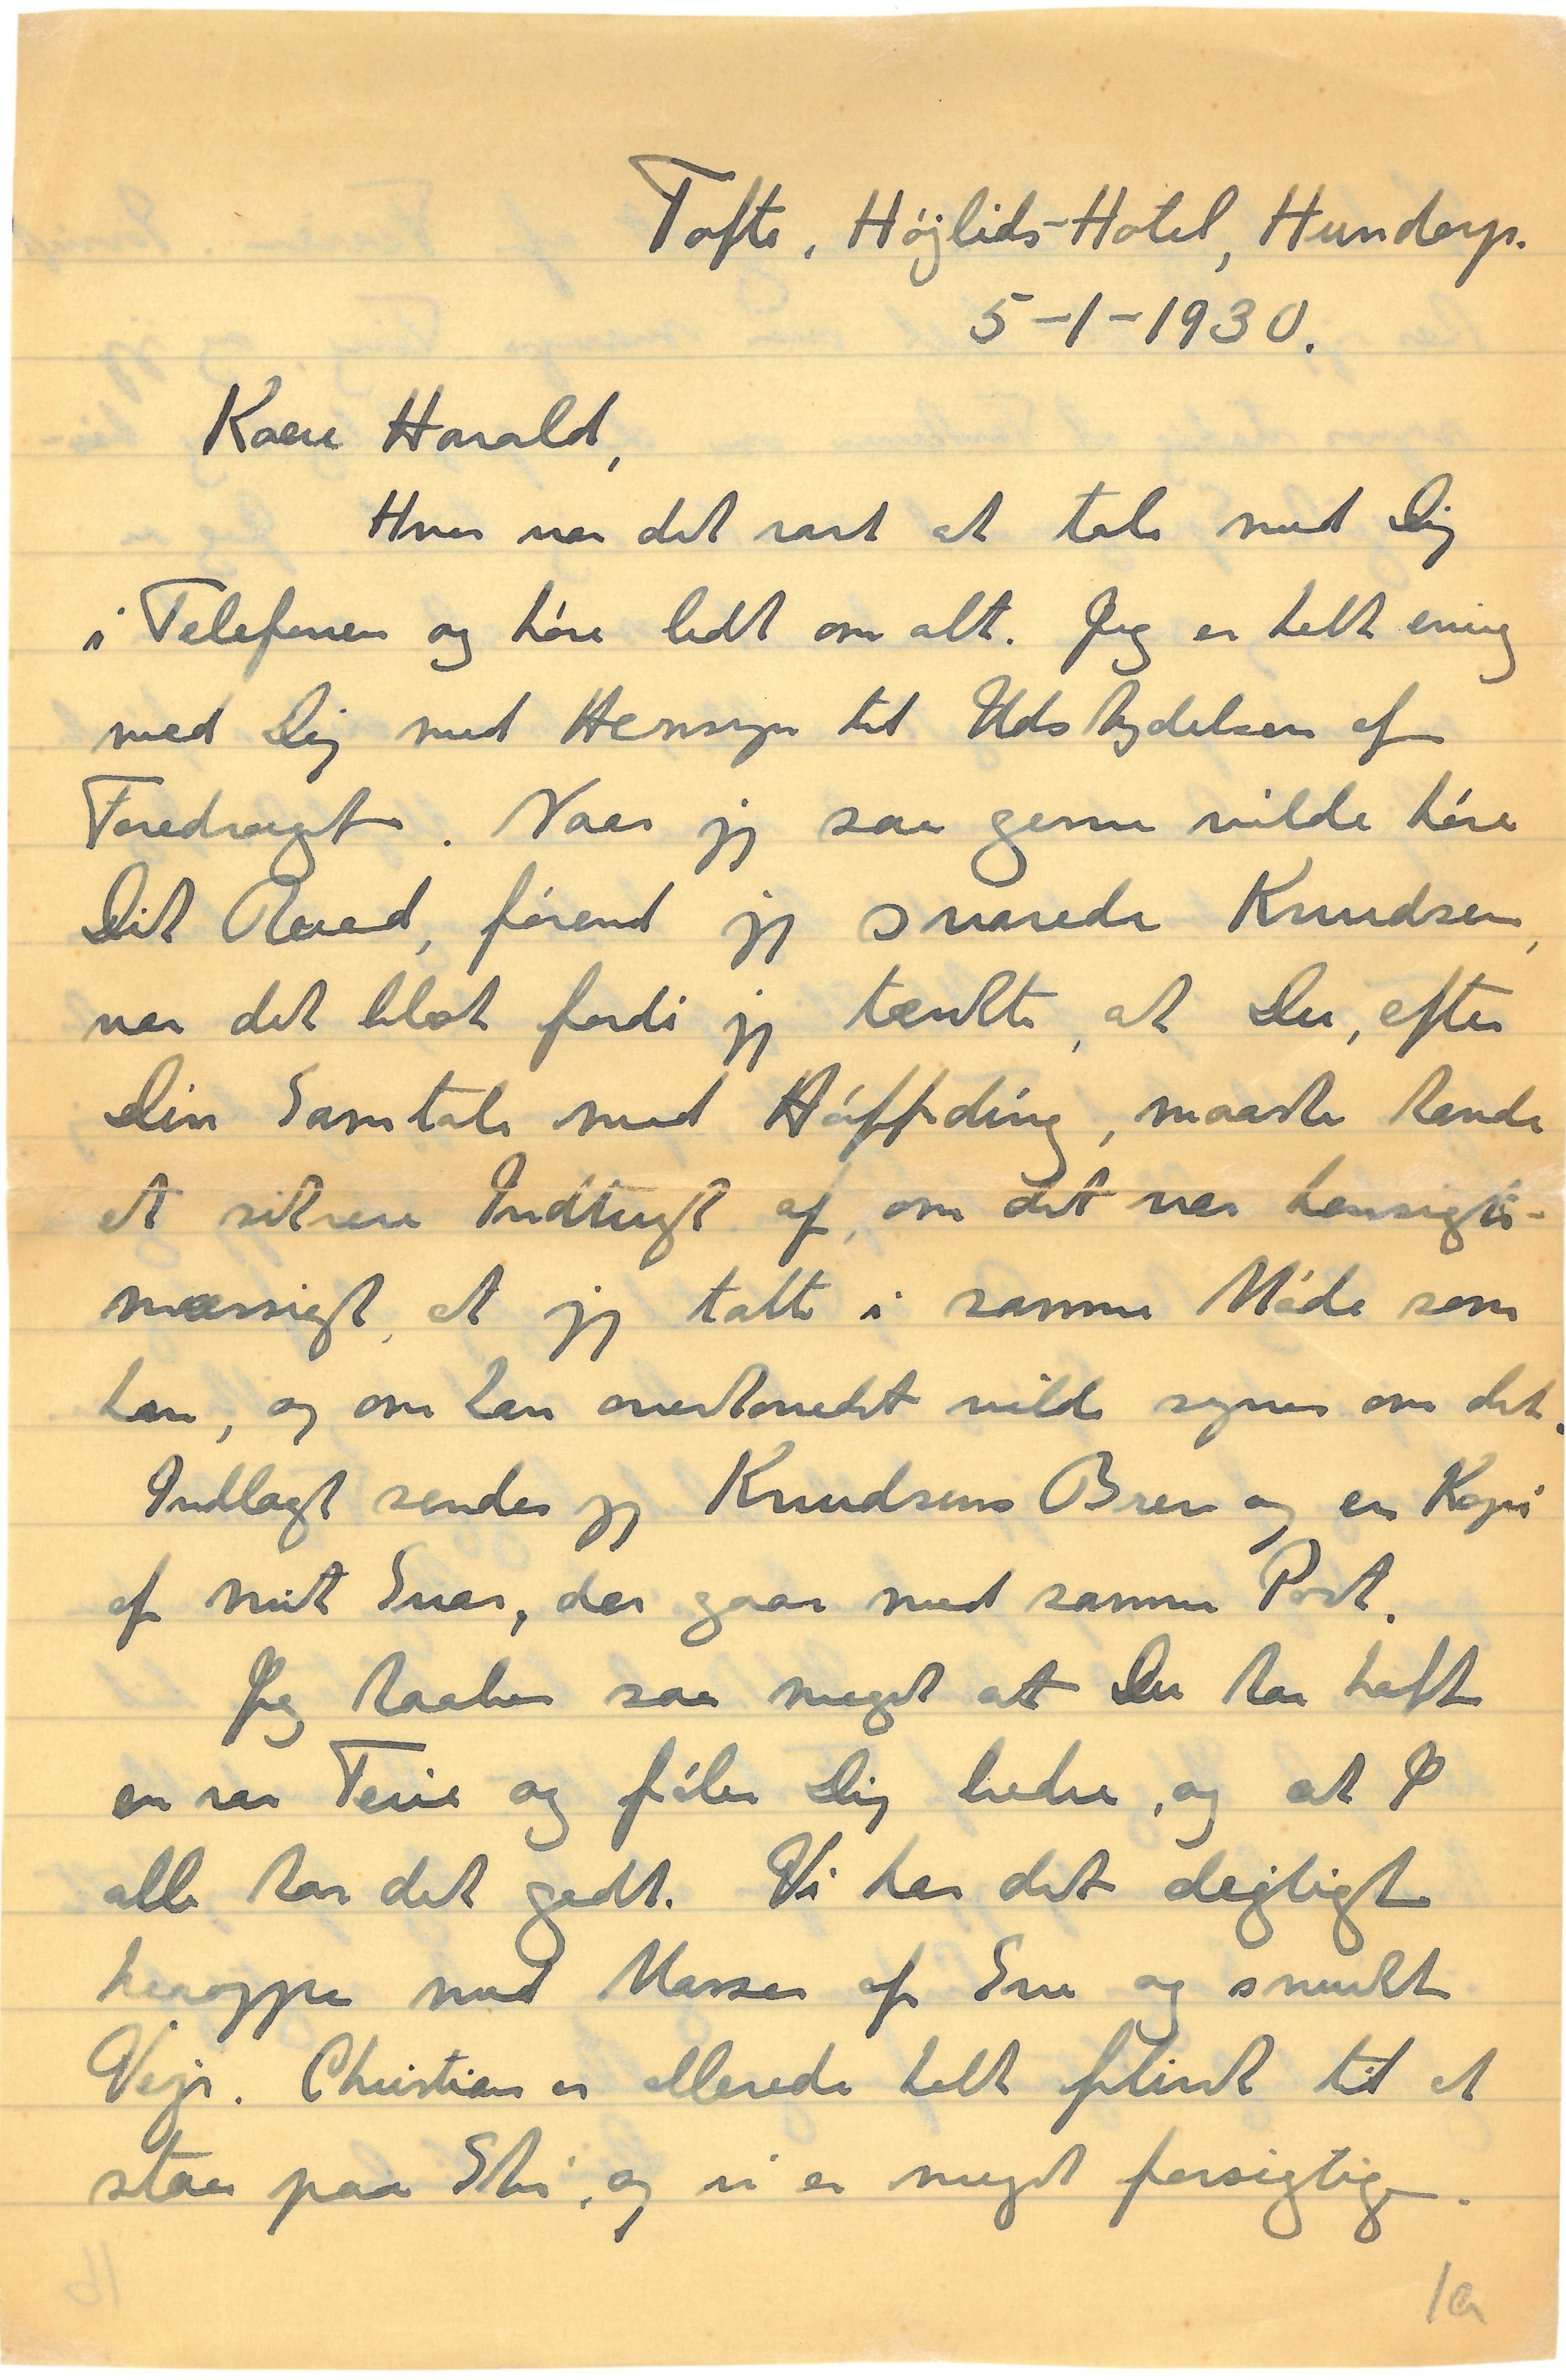 Tofte, Højlids-Hotel, Hundorp.
5-1-1930.
Kære Harald,
Hvor var det rart at tale med Dig
i Telefonen og høre lidt om alt. Jeg er helt enig
med Dig med Hensyn til Udskydelsen af
Foredraget. Naar jeg saa gerne vilde høre
Dit Raad, førend jeg svarede Knudsen,
var det blot fordi jeg tænkte, at Du, efter
Din Samtale med Høffding, maaske havde
et sikrere Indtryk af, om det var hensigts-
mæssigt, at jeg talte i samme Møde som
han, og om han overhovedet vilde synes om det.
Indlagt sender jeg Knudsens Brev og en Kopi
af mit Svar, der gaar med samme Post.
Jeg haaber saa meget at Du har haft
en rar Ferie og føler Dig bedre, og at I
alle har det godt. Vi har det dejligt
heroppe med Masser af Sne og smukt
Vejr. Christian er allerede helt flink til at
staa paa Ski, og vi er meget forsigtige.
1a